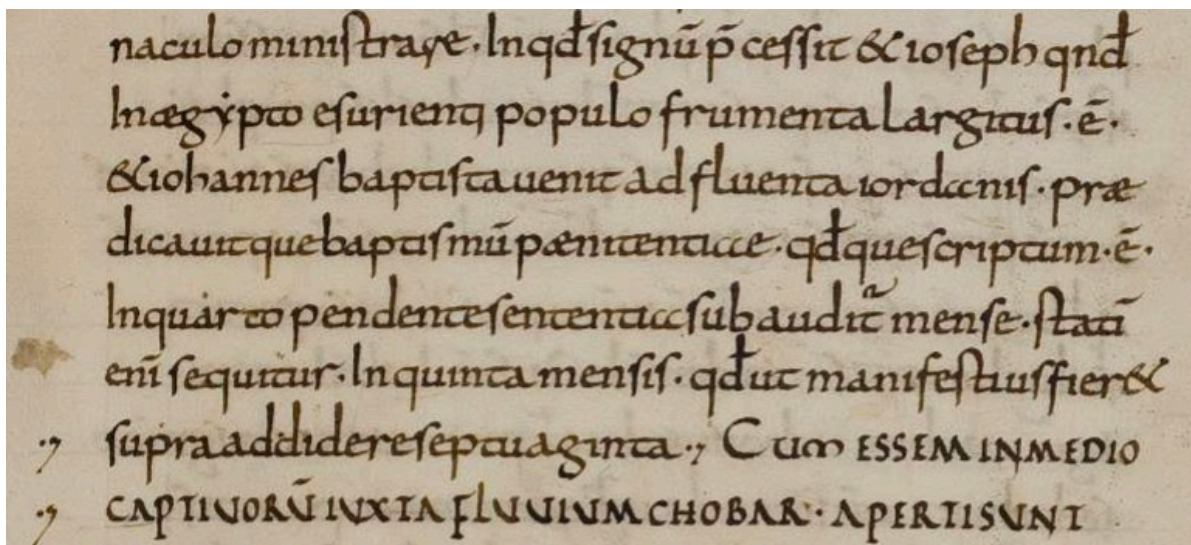 naculo ministrare. In qd̄ signū p̄cessit & ioseph qnd̄
In ægypto esurienti populo frumenta largitus. ē.
& iohannes baptista uenit ad fluenta iordanis. præ
dicauitque baptismū pænitentiae. qd̄que scriptum. ē.
In quarto pendente sententia subaudit᷑ mense. statī
enī sequitur. In quinta mensis. qd̄ ut manifestius fier&
supra addidere septuaginta., Cum ESSEM IN MEDIO
CAPTIVORŪ IUXTA FLUVIUM CHOBAR. APERTI SUNT